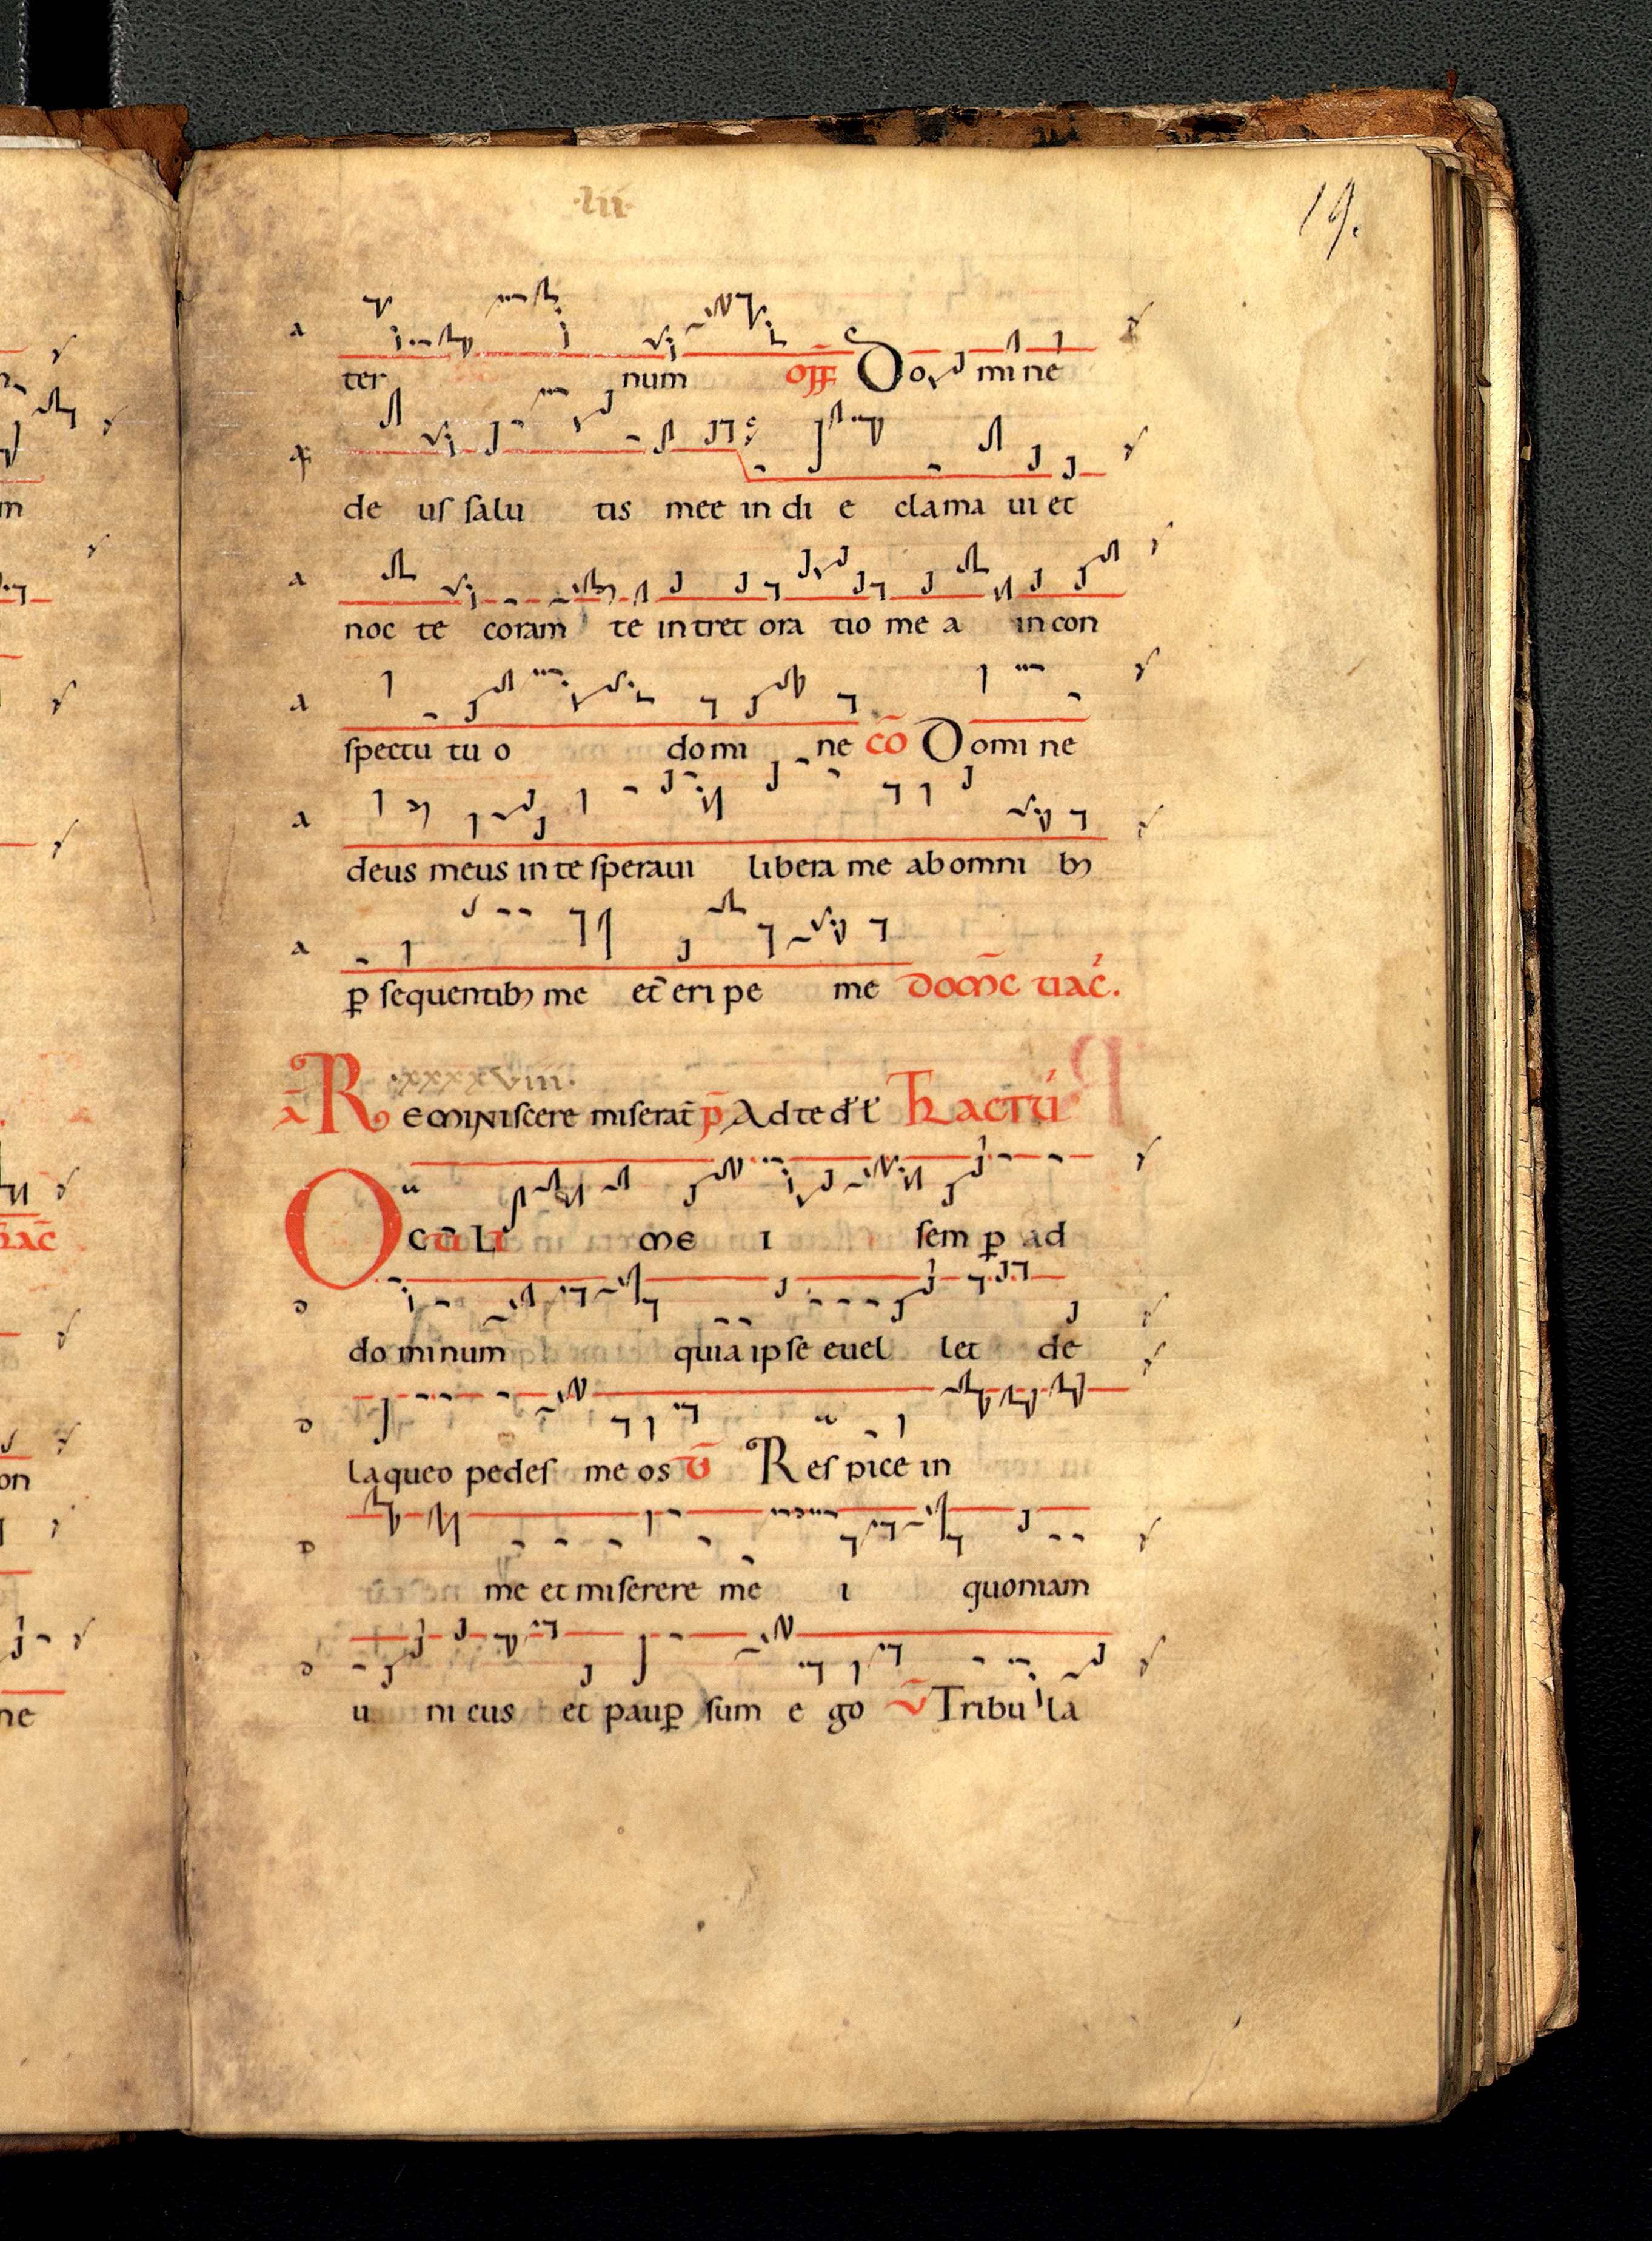 ·lii·
19.
ter num off Do mi ne
de us salu tis mee in di e clama ui et
noc te coram te in tret ora tio me a in con
spectu tu o domi ne cō Domi ne
deus meus in te speraui libera me ab omni bꝫ
ꝑ sequentibꝫ me et̄ eri pe me Dom̄c uac̄.
·xxxxviii·
Reminiscere miserat̄ p̄ Ad te d't̄ Tractu᷒
Oculi me i sem ꝑ ad
do minum quia ipse euel let de
laqueo pedes me os v̄ Res pice in
me et miserere me i quoniam
u ni cus et pauꝑ sum e go v̄ Tribu la